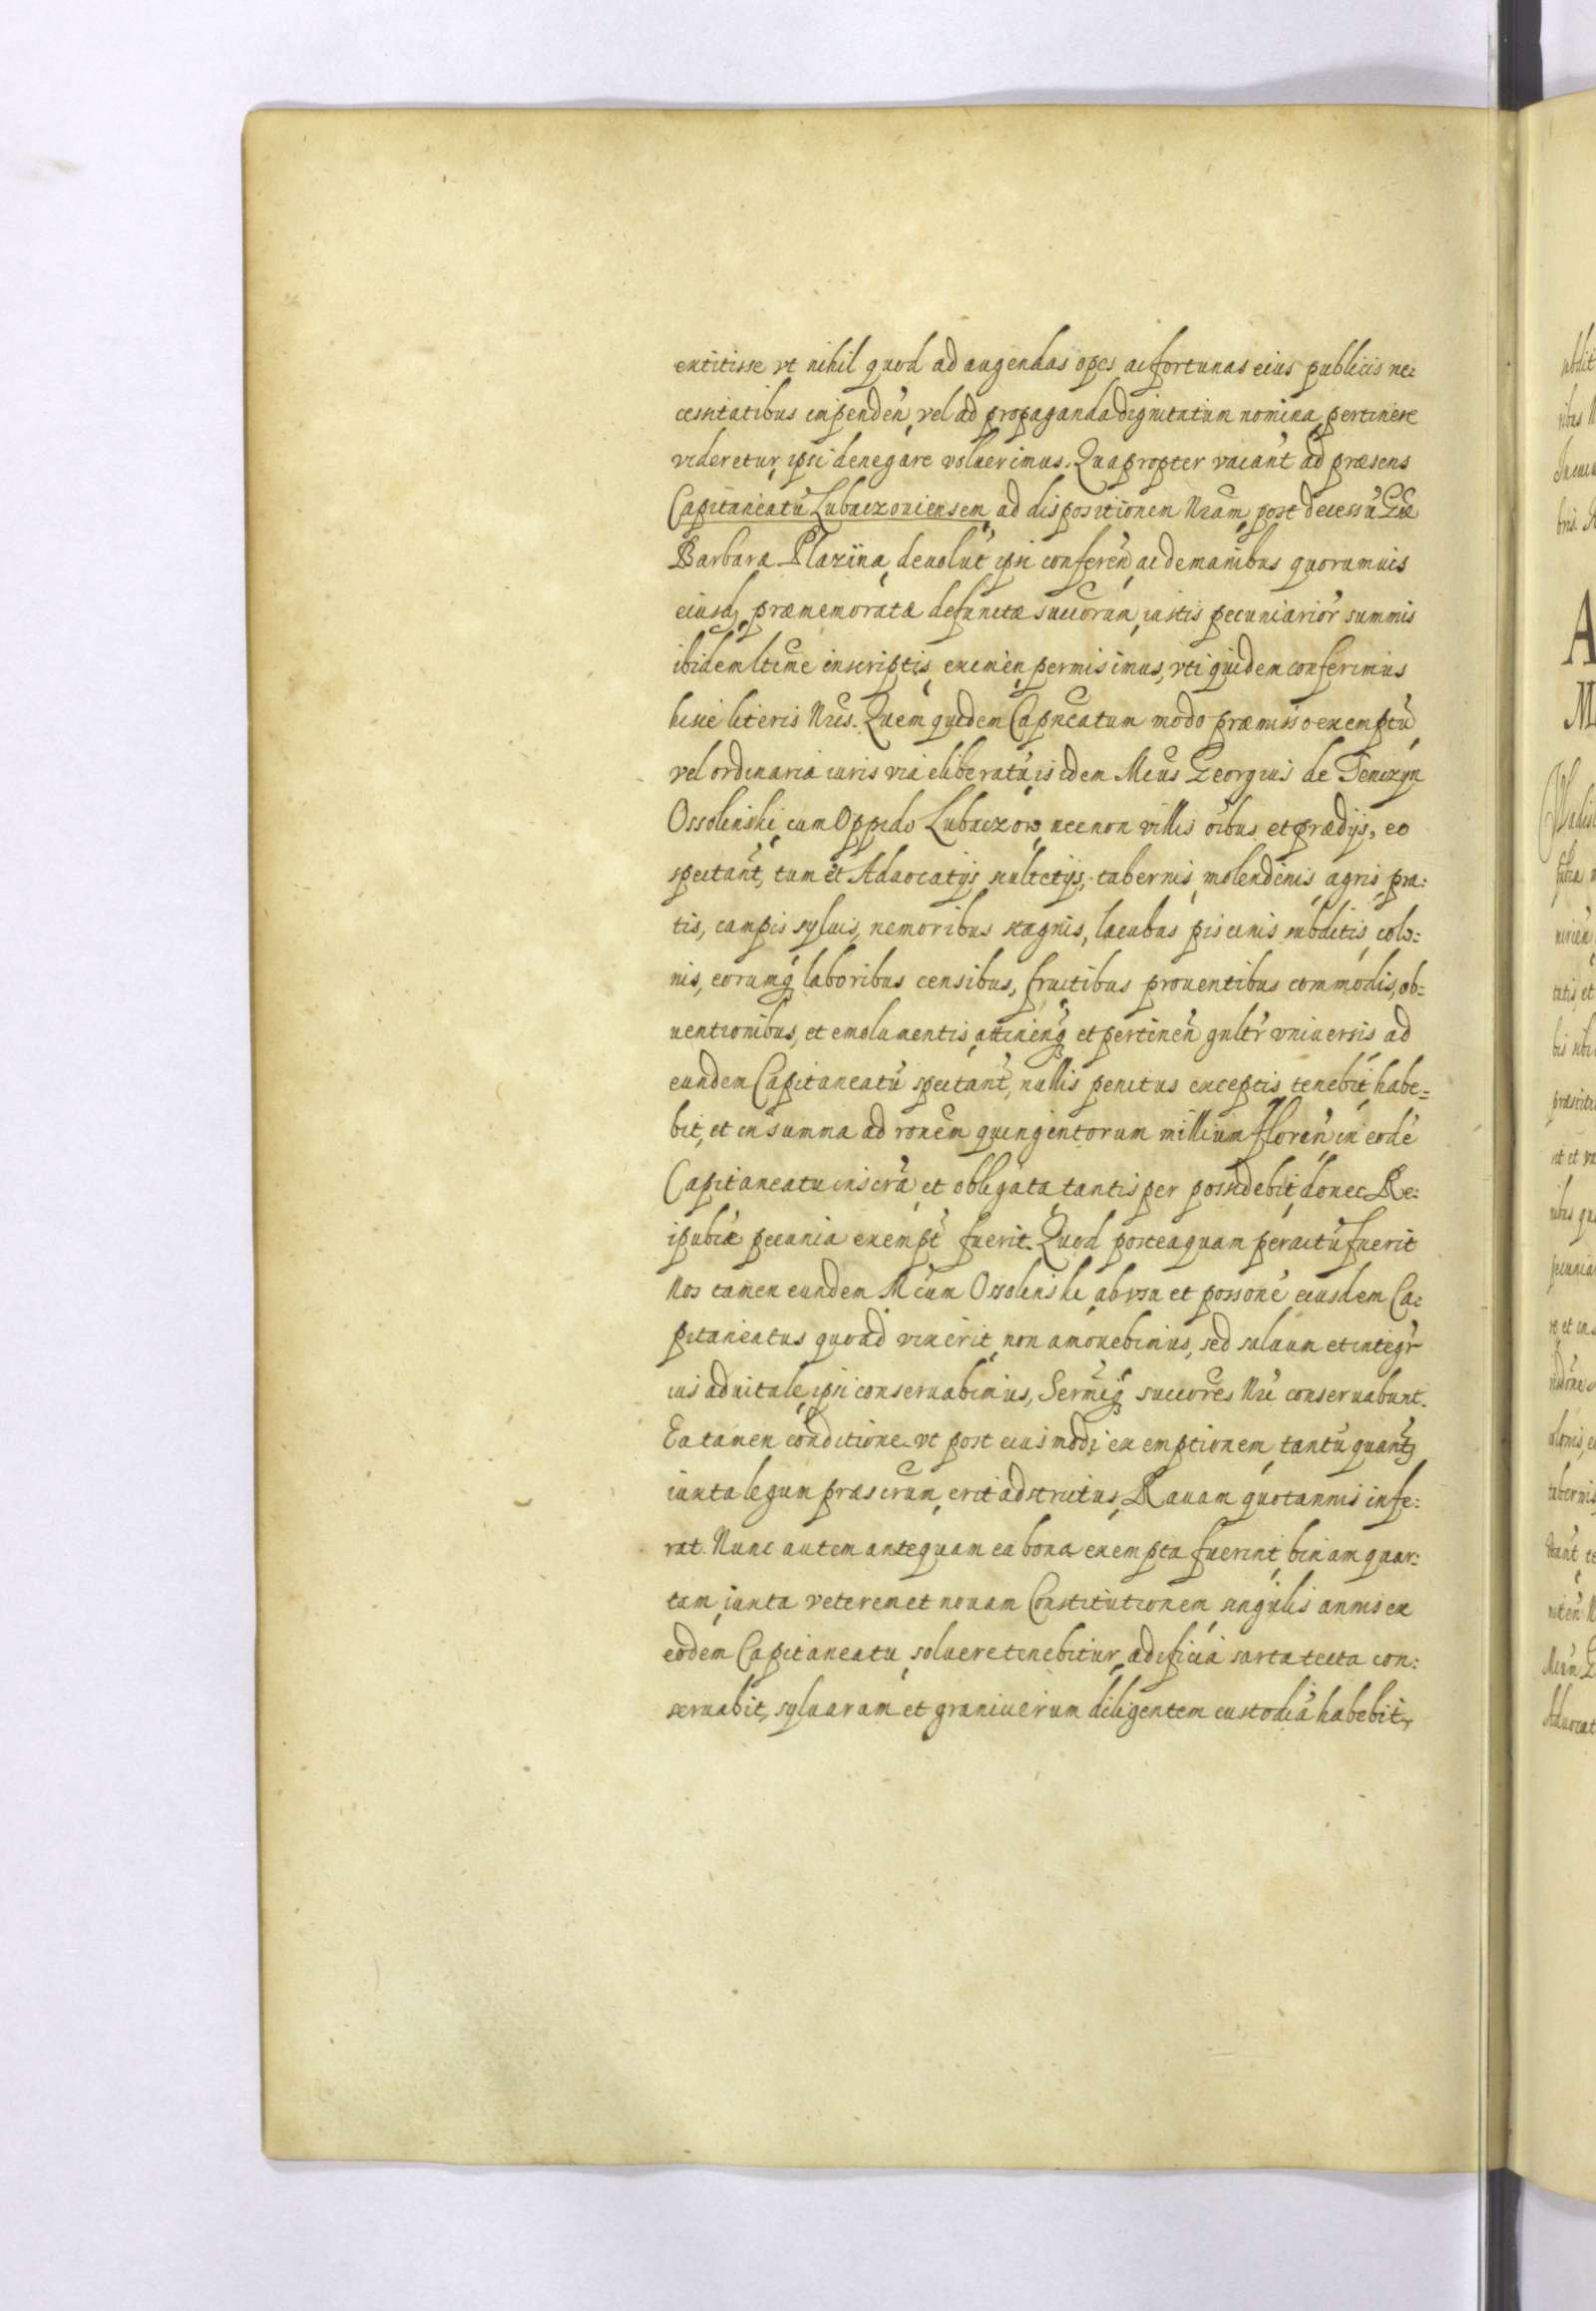 extitisse vt nihil quod ad augendas opes ac fortunas eius publicis ne:
cessitatibus impenden̄, vel ad propaganda dignitatum nomina pertinere
videretur, ipsi denegare voluerimus. Quapropter vacan̄t ad præsens
Capitaneatū Lubaczouiensem, ad dispositionem Nr̄am, post decessū Gn̄æ
Barbaræ Plazïna, deuolut̄ ipsi conferen̄, ac de manibus quorumuis
eiusdē præmemoratæ defunctæ succorum, iustis pecuniarior̄ summis
ibidem ltime inscriptis, eximen̄, permisimus, vti quidem conferimus
hisce literis Nr̄is. Quem quidem Capn̄eatum modo præmisso exemptū
vel ordinaria iuris via eliberatū, is idem Mcus Georgius de Tenczyn
Ossolinski, cum Oppido Lubaczow, necnon villis oībus et prædijs, eo
spectan̄t, tum et Aduocatijs scultetijs, tabernis, molendinis, agris, pra:
tis, campis syluis, nemoribus stagnis, lacubus, piscinis, subditis, colo:
nis, eorumq̄ laboribus censibus, fructibus prouentibus commodis, ob=
uentionibus, et emolumentis, attinenq̄ et pertinen̄ gnltr̄ vniuersis ad
eundem Capitaneatū spectan̄t, nullis penitus exceptis, tenebit, habe=
bit, et in summa ad ronem quingentorum millium floren̄ in eodē
Capitaneatu inscr̄a, et obligata, tantisper possidebit, donec Re:
ipublæ pecunia exempt̄ fuerit. Quod posteaquam peractū fuerit
Nos tamen eundem Mcum Ossolinski, ab vsu et possonē eiusdem Ca:
pitaneatus quoad vixerit, non amouebimus, sed saluum et integr̄
ius aduitale, ipsi conseruabimus, Sermiq̄ succores Nr̄i conseruabunt.
Ea tamen conditione vt post eiusmodi exemptionem, tantū quant̄
iuxta legum præscrum, erit adstrictus, Rauam quotannis infe:
rat. Nunc autem antequam ea bona exempta fuerint, binam quar:
tam, iuxta veterem et nouam Constitutionem, singulis annis ex
eodem Capitaneatu, soluere tenebitur, ædificia sarta tecta con:
seruabit, syluarum et granicierum diligentem custodiā habebit,